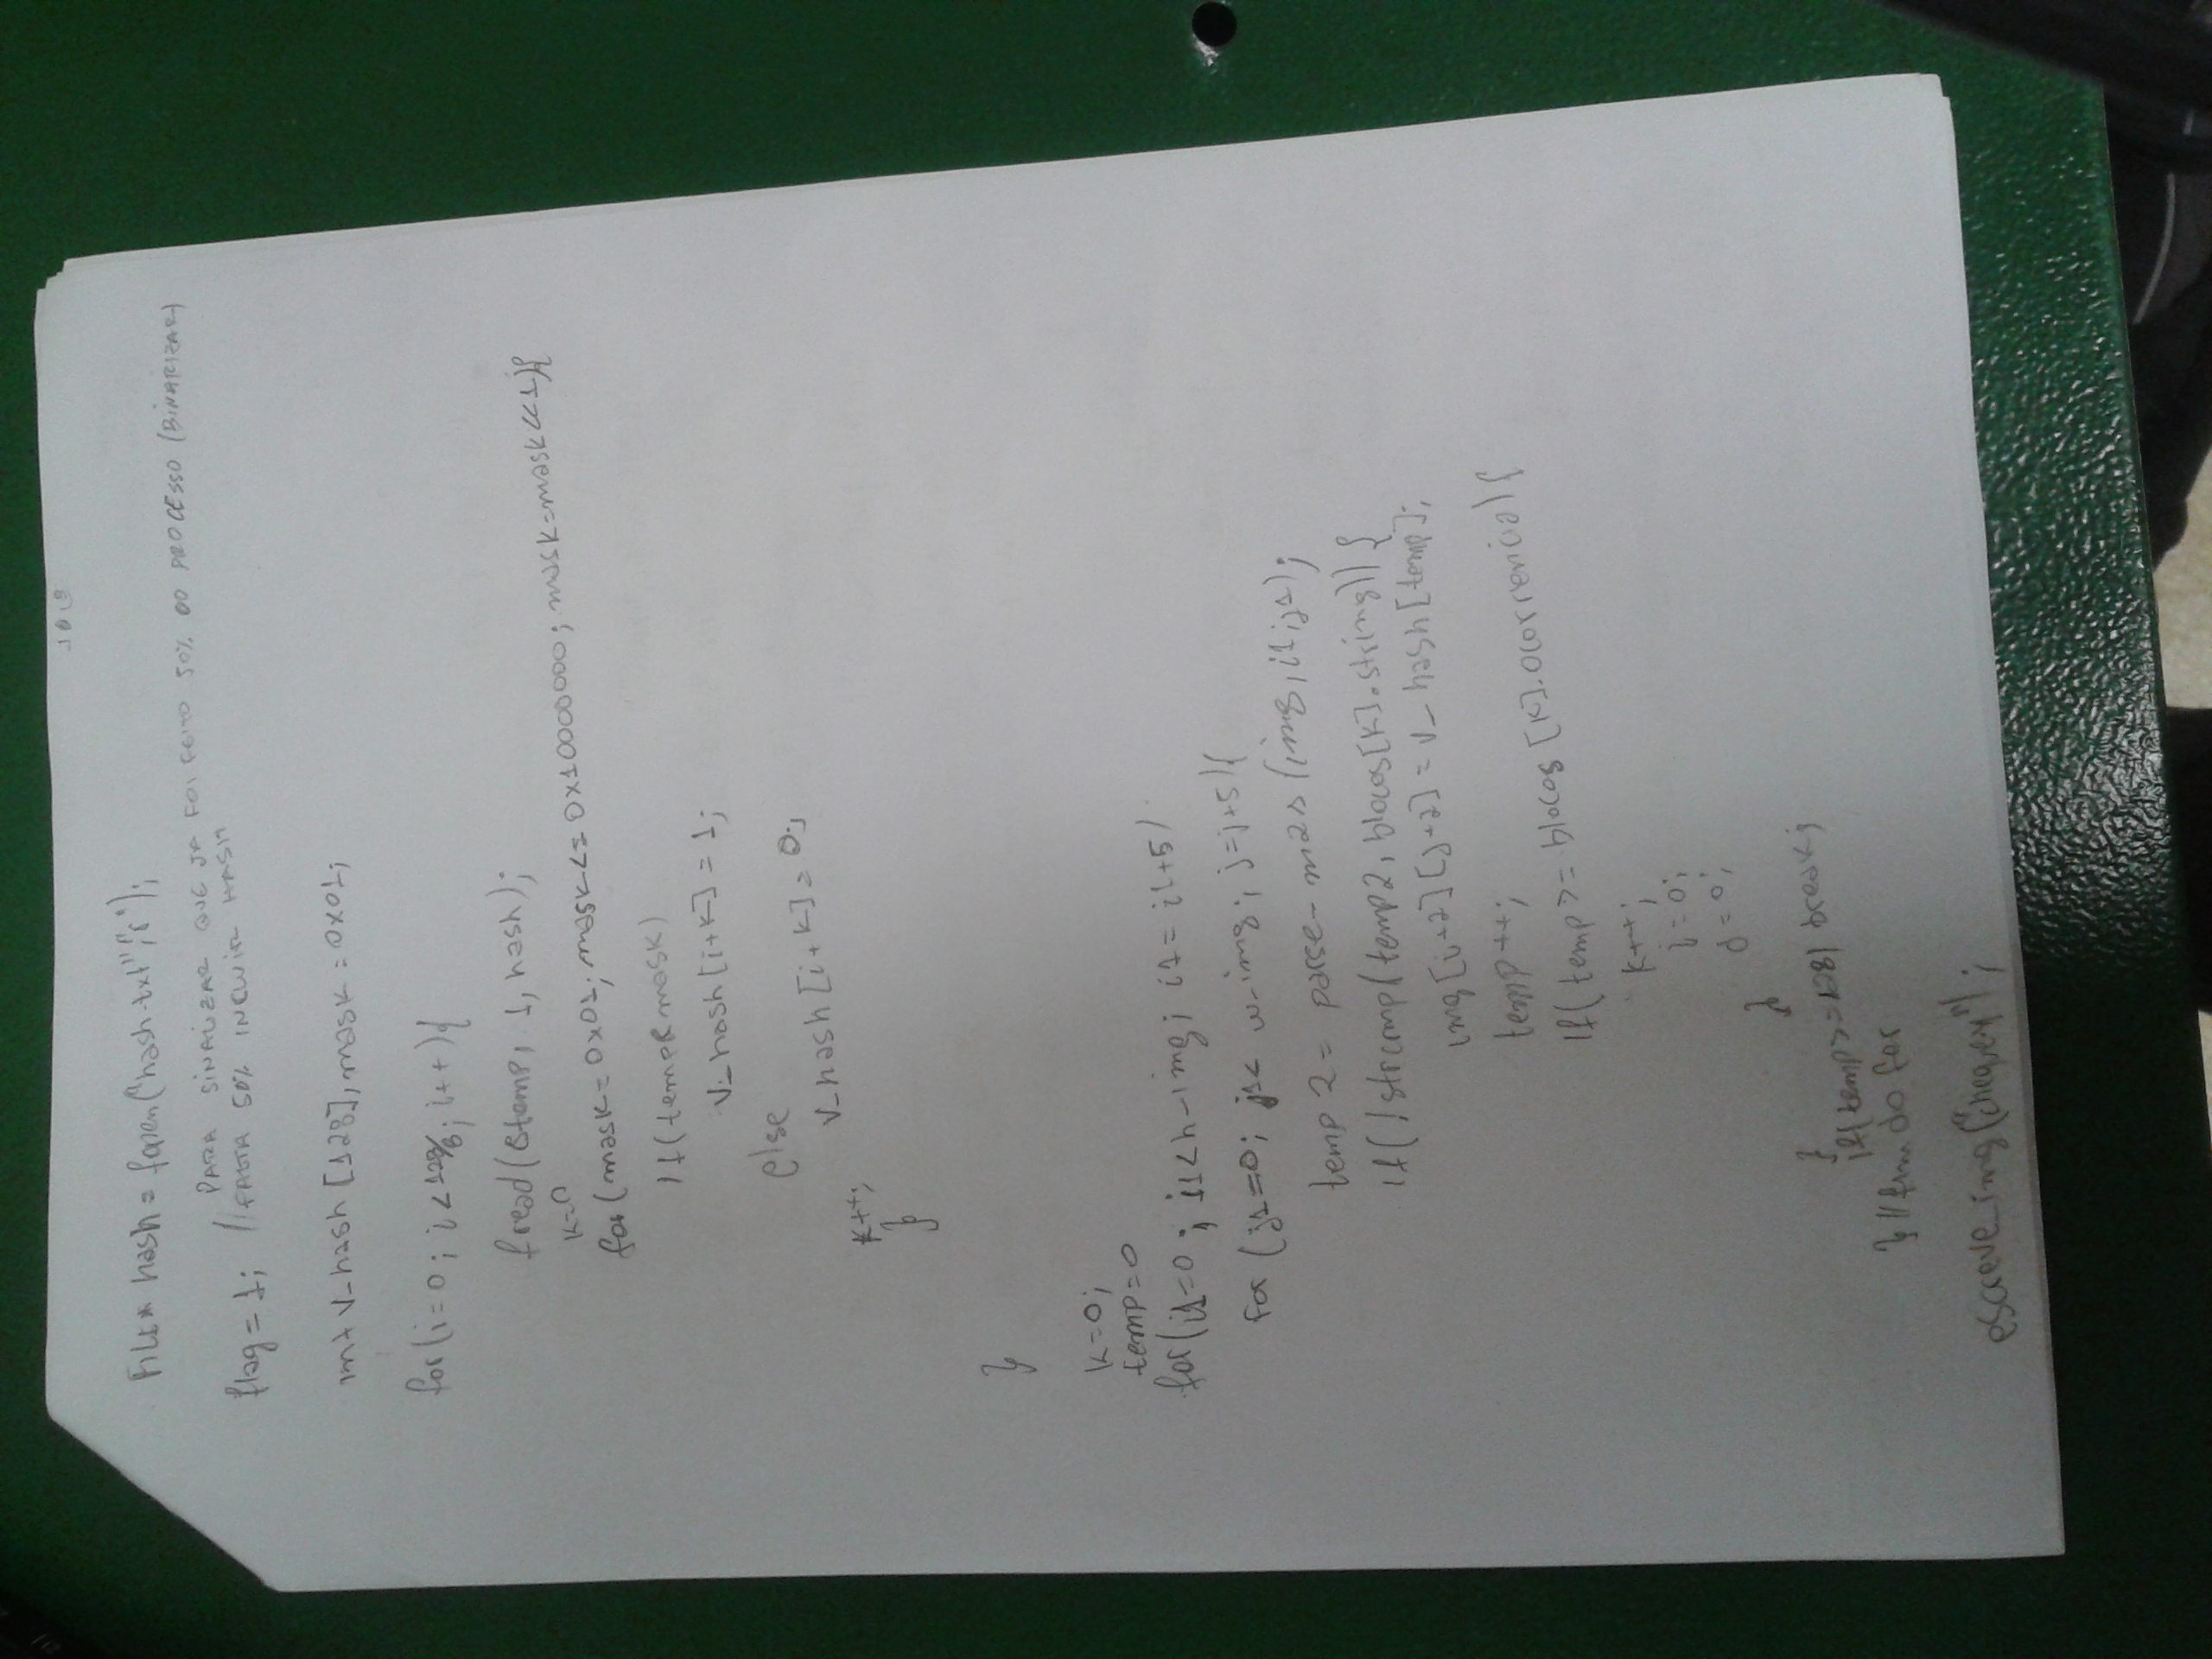 FILE* hash = fopen("hash.txt","r");
PARA SINALIZAR QUE JA FOI FEITO 50% DO PROCESSO (BINARIZAR)
flag = 1; // FALTA 50% INCLUIR HASH
int v_hash [128], mask = 0x01;
for(i=0; i<128/8; i++){
fread(&temp, 1, hash);
k=0
for(mask=0x01; mask<=0x10000000; mask=mask<<1){
if(temp&mask)
v_hash[i+k] = 1;
else
v_hash[i+k] = 0;
k++;
}
}
k=0;
temp=0
for(i1=0; i1<h_img; i1=i1+5)
for (j1=0; j1< w_img; j=j+5){
temp2 = parse_mas(img,i1,j1);
if(!strcmp(temp2, blocos[k].string)) {
img[i+2][j+2] = v_hash[temp];
temp++;
if(temp>= blocos[k].ocorrencia){
k++;
i=0;
j=0;
}
}
if(temp>=128) break;
} //fim do for
escreve_img(" ");